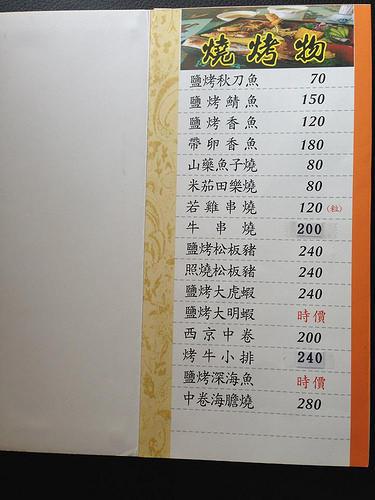 燒烤物
鹽烤秋刀魚 70
鹽烤鯖魚 150
鹽烤香魚 120
帶卵香魚 180
山藥魚子燒 80
米茄田樂燒 80
若雞串燒 120(粒)
牛串燒 200
鹽烤松板豬 240
照燒松板豬 240
鹽烤大虎蝦 240
鹽烤大明蝦 時價
西京中卷 200
烤牛小排 240
鹽烤深海魚 時價
中卷海膽燒 280